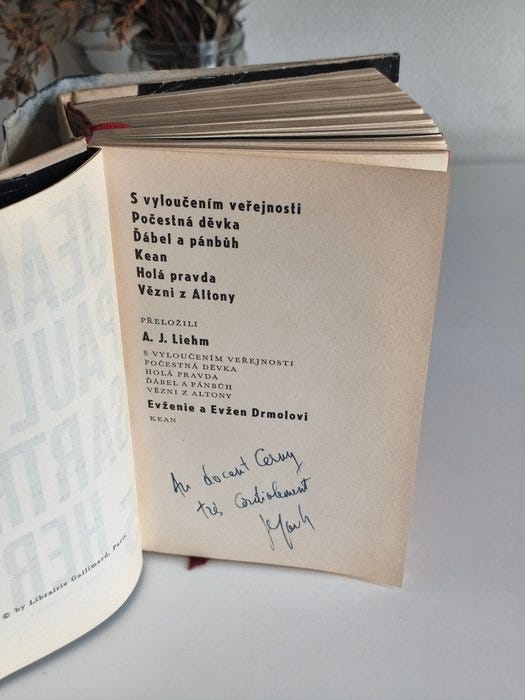 S vyloučením veřejnosti
Počestná děvka
Ďábel a pánbůh
Kean
Holá pravda
Vězni z Altony
PŘELOŽILI
A. J. Liehm
S VYLOUČENÍM VEŘEJNOSTI
POČESTNÁ DĚVKA
HOLÁ PRAVDA
ĎÁBEL A PÁNBŮH
VĚZNI Z ALTONY
Evženie a Evžen Drmolovi
KEAN
Au docent Cerny
très Cordialement
© by Librairie Gallimard, Paris